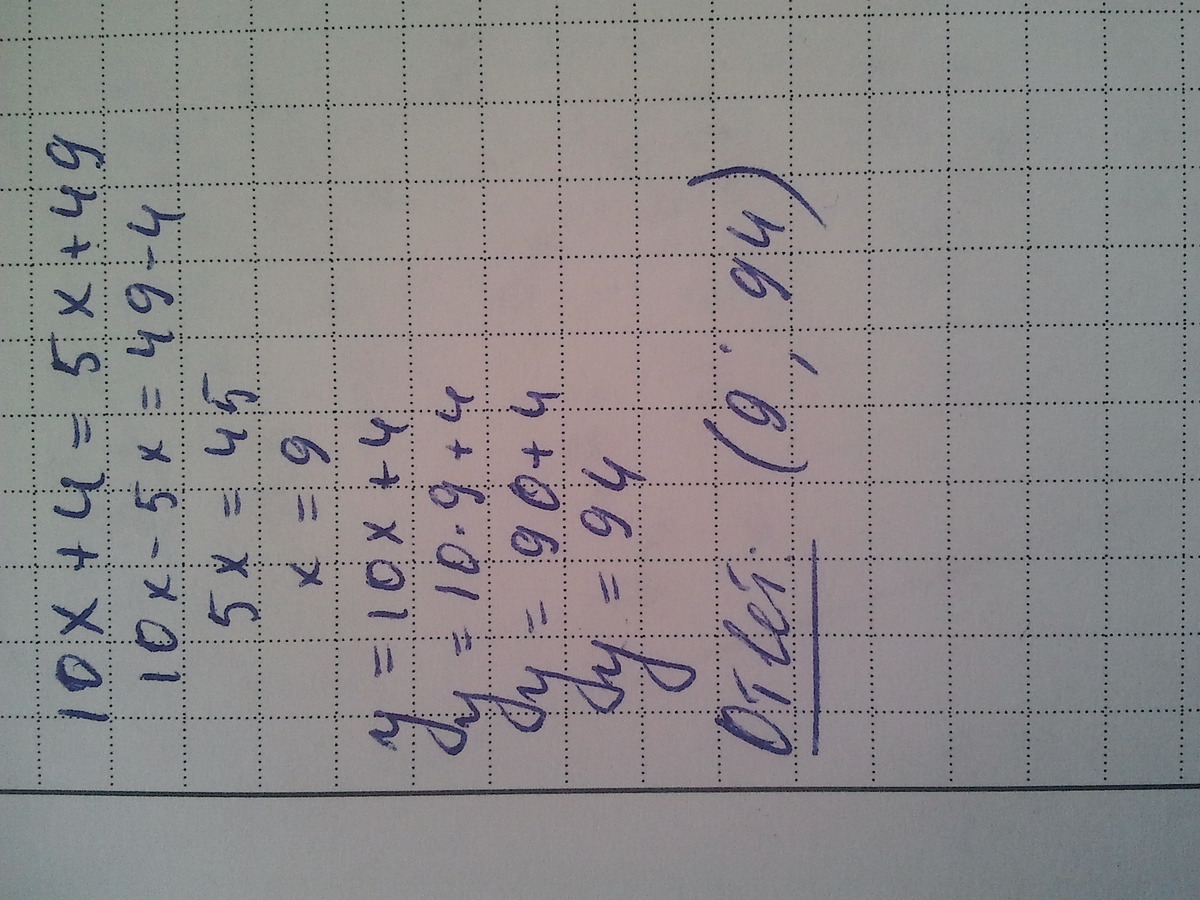 10x + 4 = 5x + 49
10x - 5x = 49 - 4
5x = 45
x = 9
y = 10x + 4
y = 10·9 + 4
y = 90 + 4
y = 94
Ответ: (9; 94)